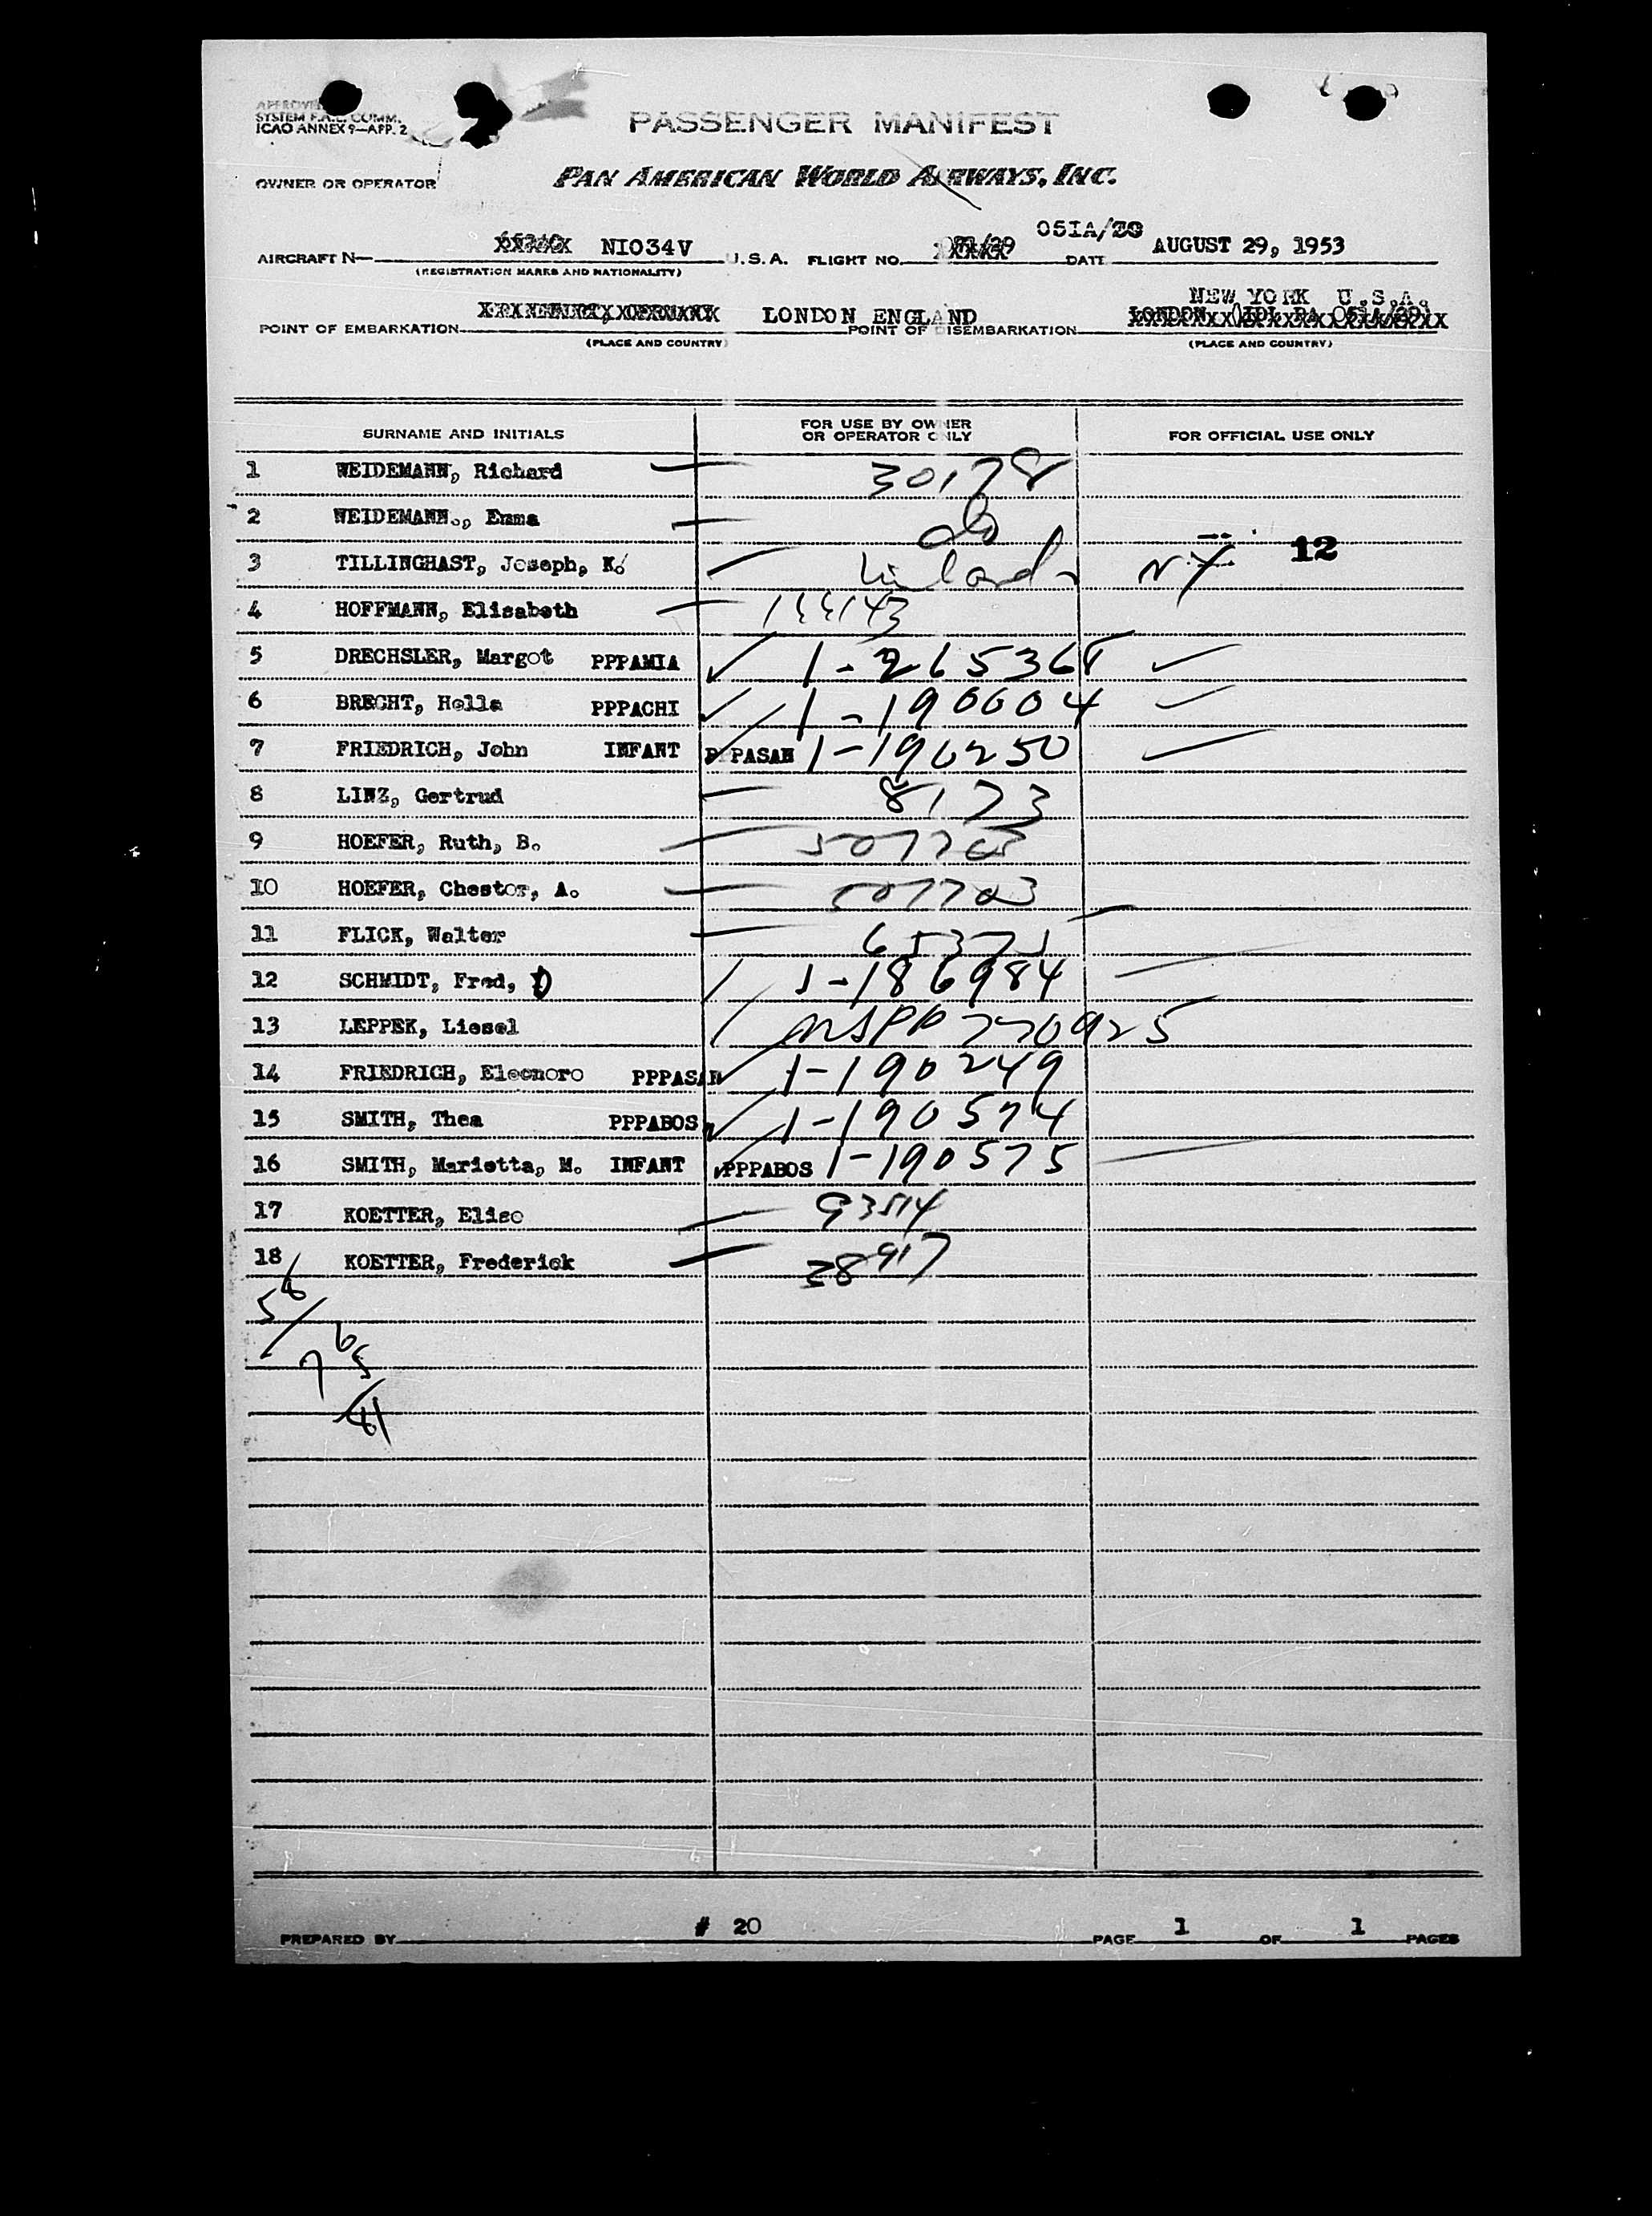 SYSTEM F.A.L. COMM.
ICAO ANNEX 9—APP. 2
PASSENGER MANIFEST
OWNER OR OPERATOR
PAN AMERICAN WORLD AIRWAYS, INC.
AIRCRAFT N— N1034V U.S.A. FLIGHT NO. 051A/ DATE AUGUST 29, 1953
(REGISTRATION MARKS AND NATIONALITY)
NEW YORK U.S.A.
POINT OF EMBARKATION LONDON ENGLAND POINT OF DISEMBARKATION
(PLACE AND COUNTRY) (PLACE AND COUNTRY)
SURNAME AND INITIALS FOR USE BY OWNER OR OPERATOR ONLY FOR OFFICIAL USE ONLY
1 WEIDEMANN, Richard 30178
2 WEIDEMANN., Emma do
3 TILLINGHAST, Joseph, K. NY 12
4 HOFFMANN, Elisabeth
5 DRECHSLER, Margot PPPAMIA 1-265368
6 BRECHT, Hella PPPACHI 1-190004
7 FRIEDRICH, John INFANT PPPASAN 1-190250
8 LINZ, Gertrud 8173
9 HOEFER, Ruth, B. 507703
10 HOEFER, Chester, A. 507703
11 FLICK, Walter 65375
12 SCHMIDT, Fred, D 1-186984
13 LEPPEK, Liesel 770925
14 FRIEDRICH, Eleonore PPPASAN 1-190249
15 SMITH, Thea PPPABOS 1-190574
16 SMITH, Marietta, M. INFANT PPPABOS 1-190575
17 KOETTER, Elise 93514
18 KOETTER, Frederick 38917
PREPARED BY # 20 PAGE 1 OF 1 PAGES